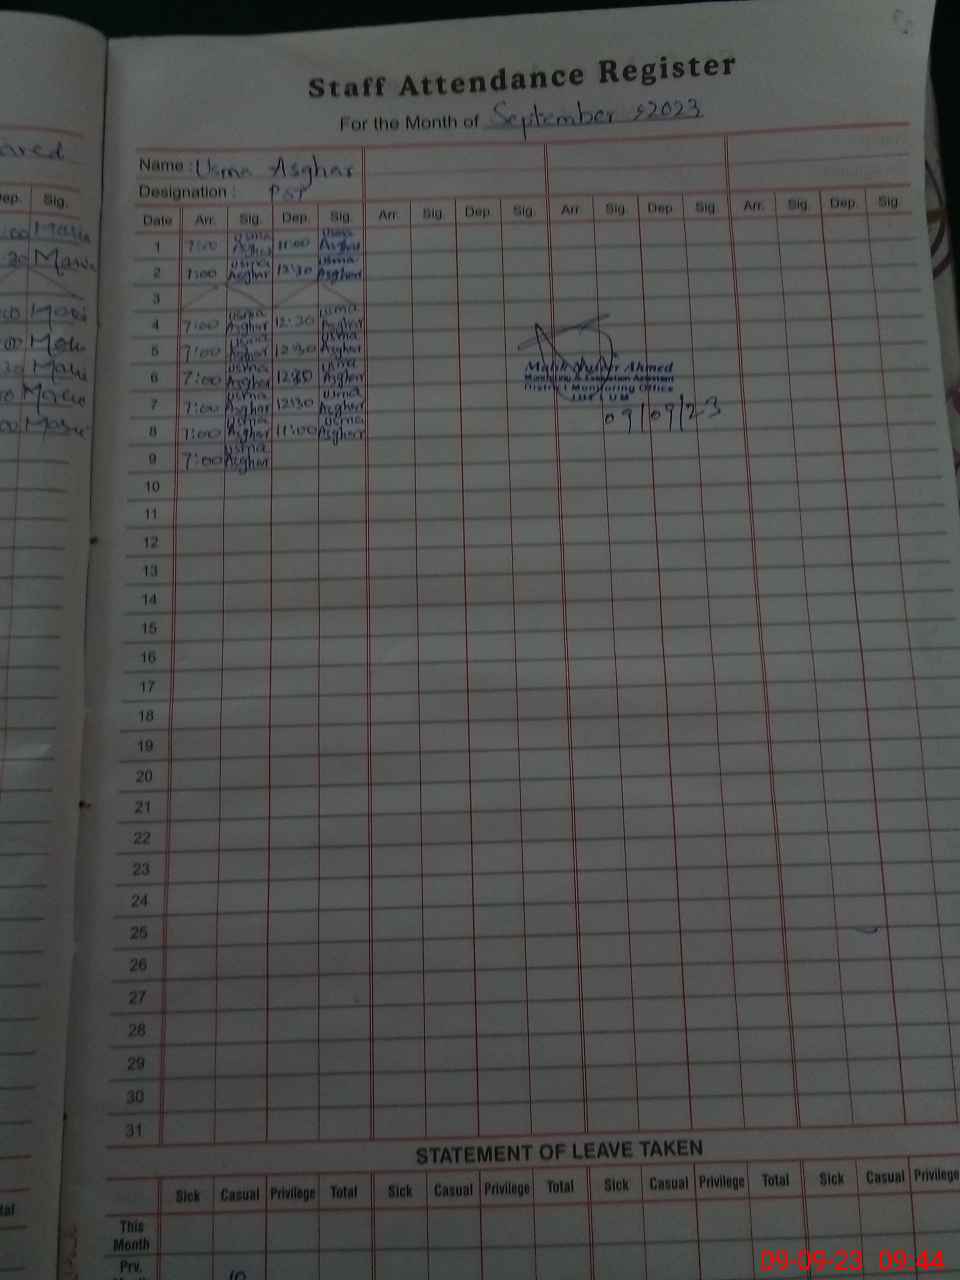 Staff Attendance Register
For the Month of September 2023
Name : Usma Asghar
Designation : PST
Date Arr. Sig. Dep. Sig. Arr. Sig. Dep. Sig. Arr. Sig. Dep. Sig. Arr. Sig. Dep. Sig.
1 7:00 Usma Asghar 11:00 Usma Asghar
2 7:00 Usma Asghar 12:30 Usma Asghar
3
4 7:00 Usma Asghar 12:30 Usma Asghar
5 7:00 Usma Asghar 12:30 Usma Asghar
6 7:00 Usma Asghar 12:30 Usma Asghar
7 7:00 Usma Asghar 12:30 Usma Asghar
8 7:00 Usma Asghar 11:00 Usma Asghar
9 7:00 Usma Asghar
Ahmed
Monitoring & Evaluation Assistant
District Monitoring Office
09/09/23
10
11
12
13
14
15
16
17
18
19
20
21
22
23
24
25
26
27
28
29
30
31
STATEMENT OF LEAVE TAKEN
Sick Casual Privilege Total Sick Casual Privilege Total Sick Casual Privilege Total Sick Casual Privilege
This Month
Prv.
09-09-23 09:44
ep. Sig.